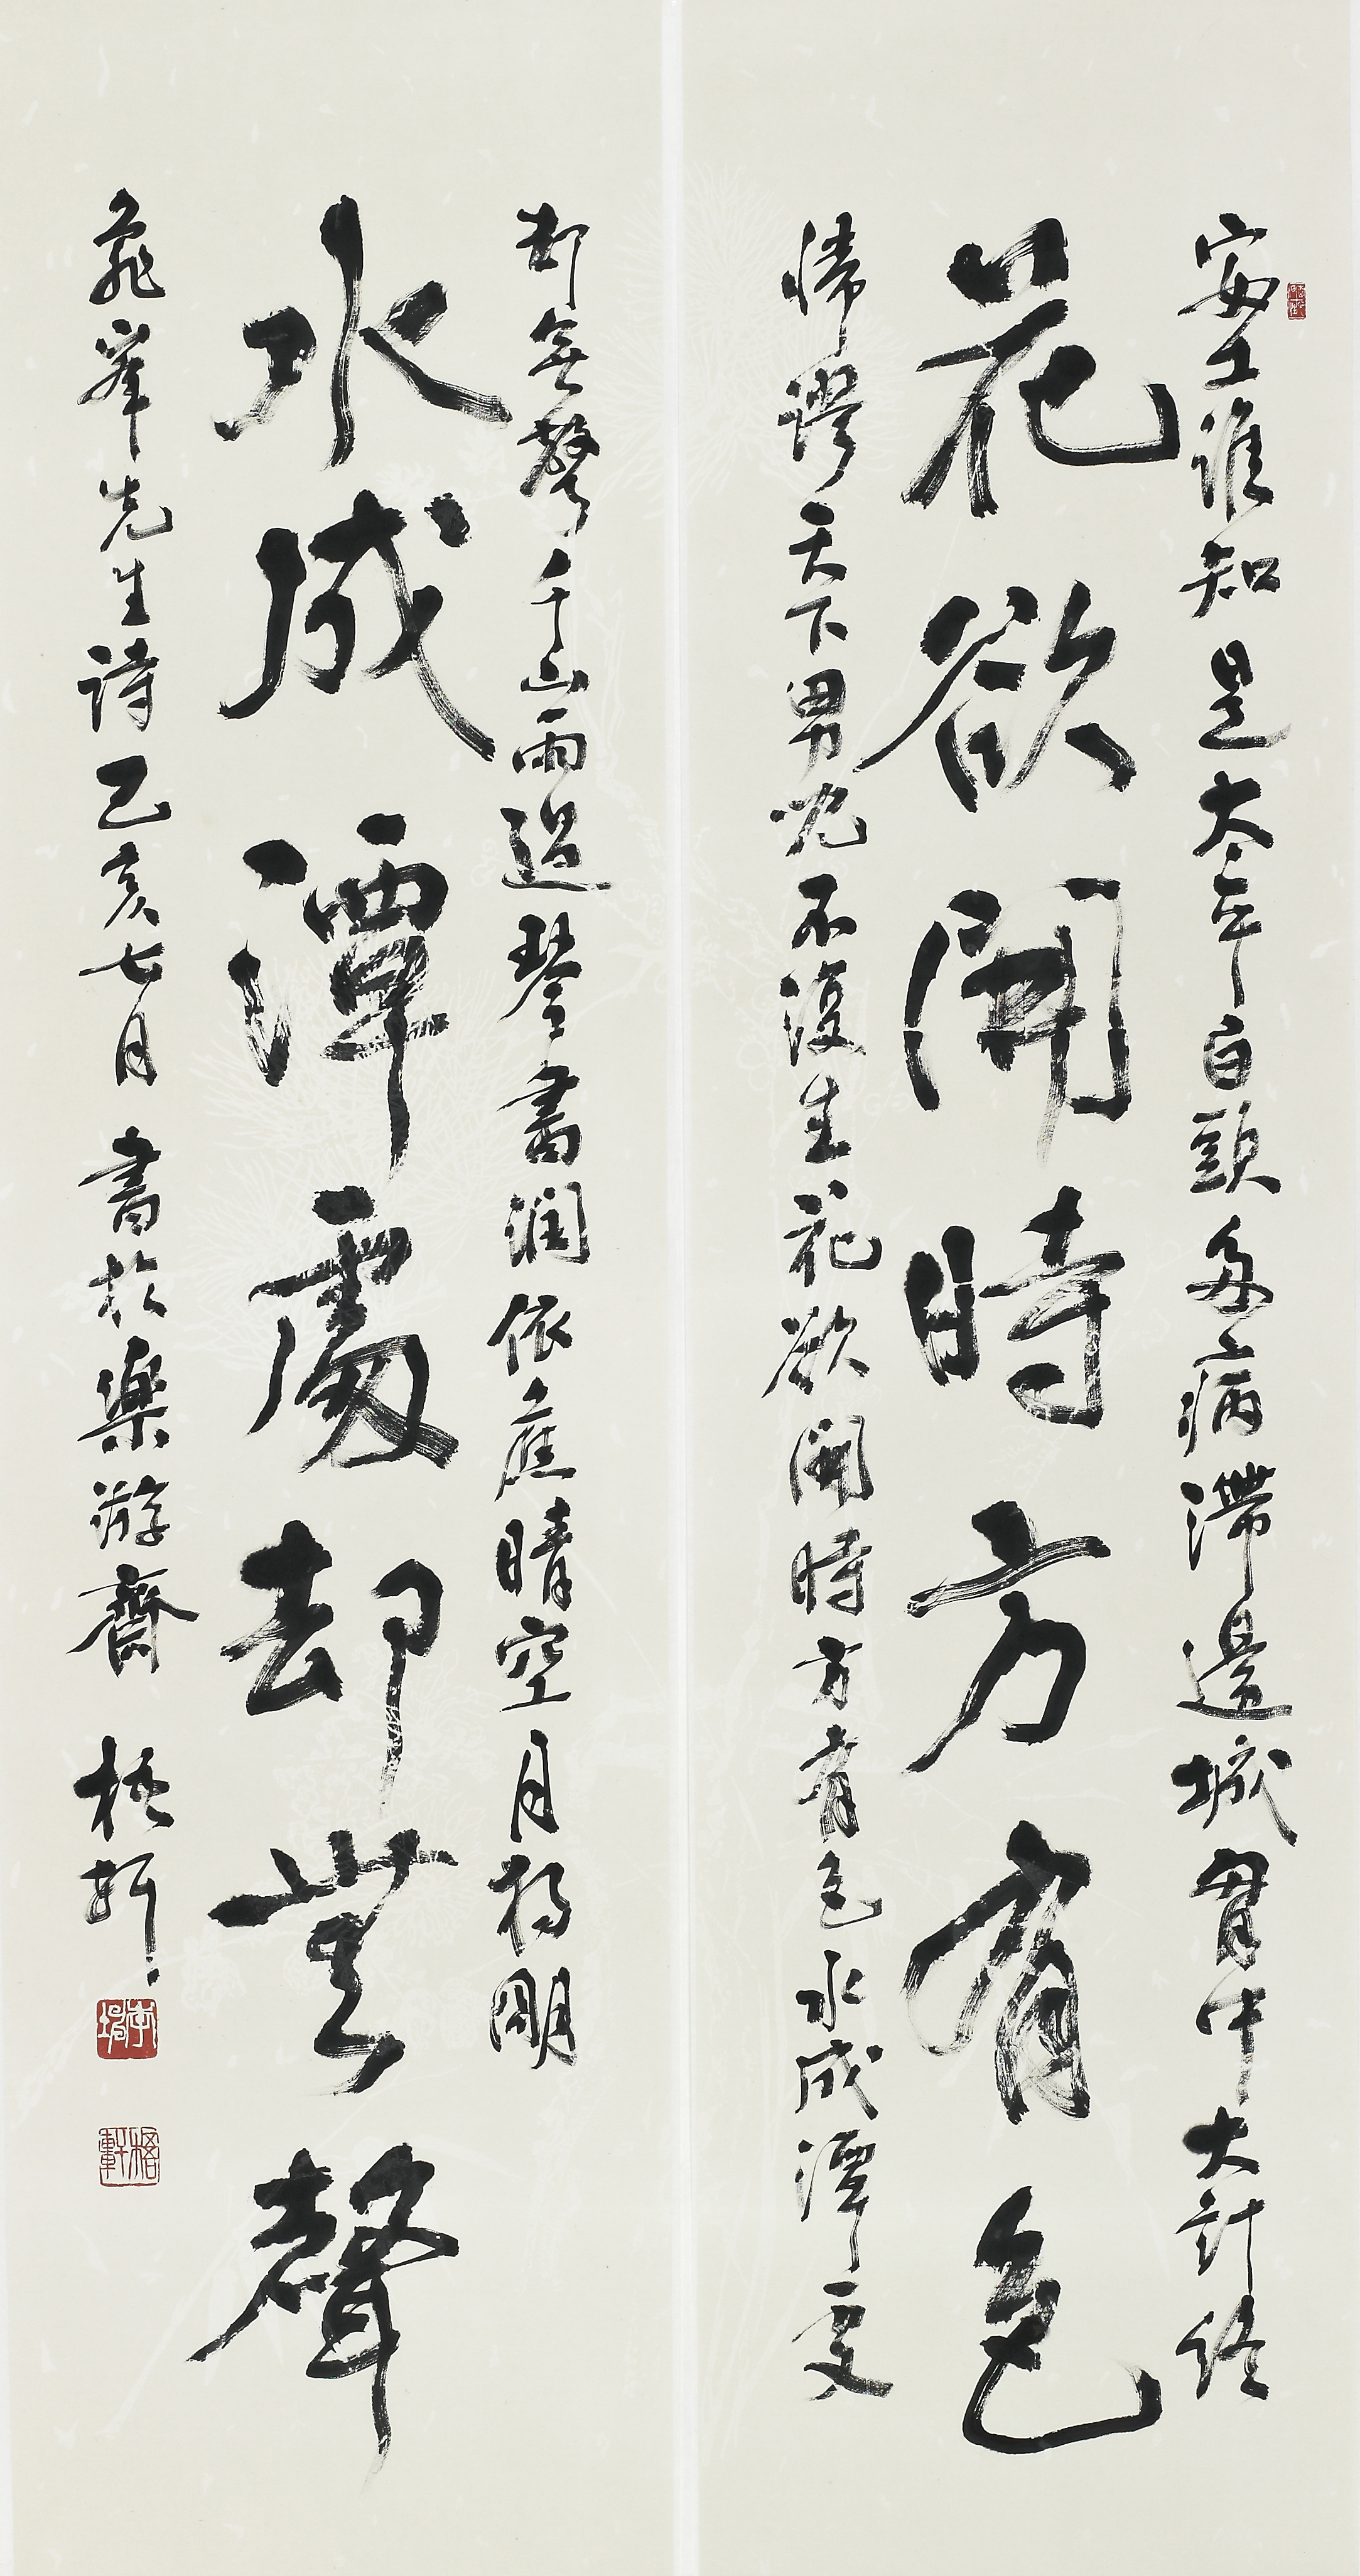 安土誰知是太平白頭多病滯邊城胷中大計終
花欲開時方有色
歸謬天下男兒不復生花欲開時方有色水成潭處
却無聲千山雨過琴書潤依舊晴空月獨明
水成潭處却無聲
龜峯先生詩己亥七月 書於樂游齋 梧軒
梧軒